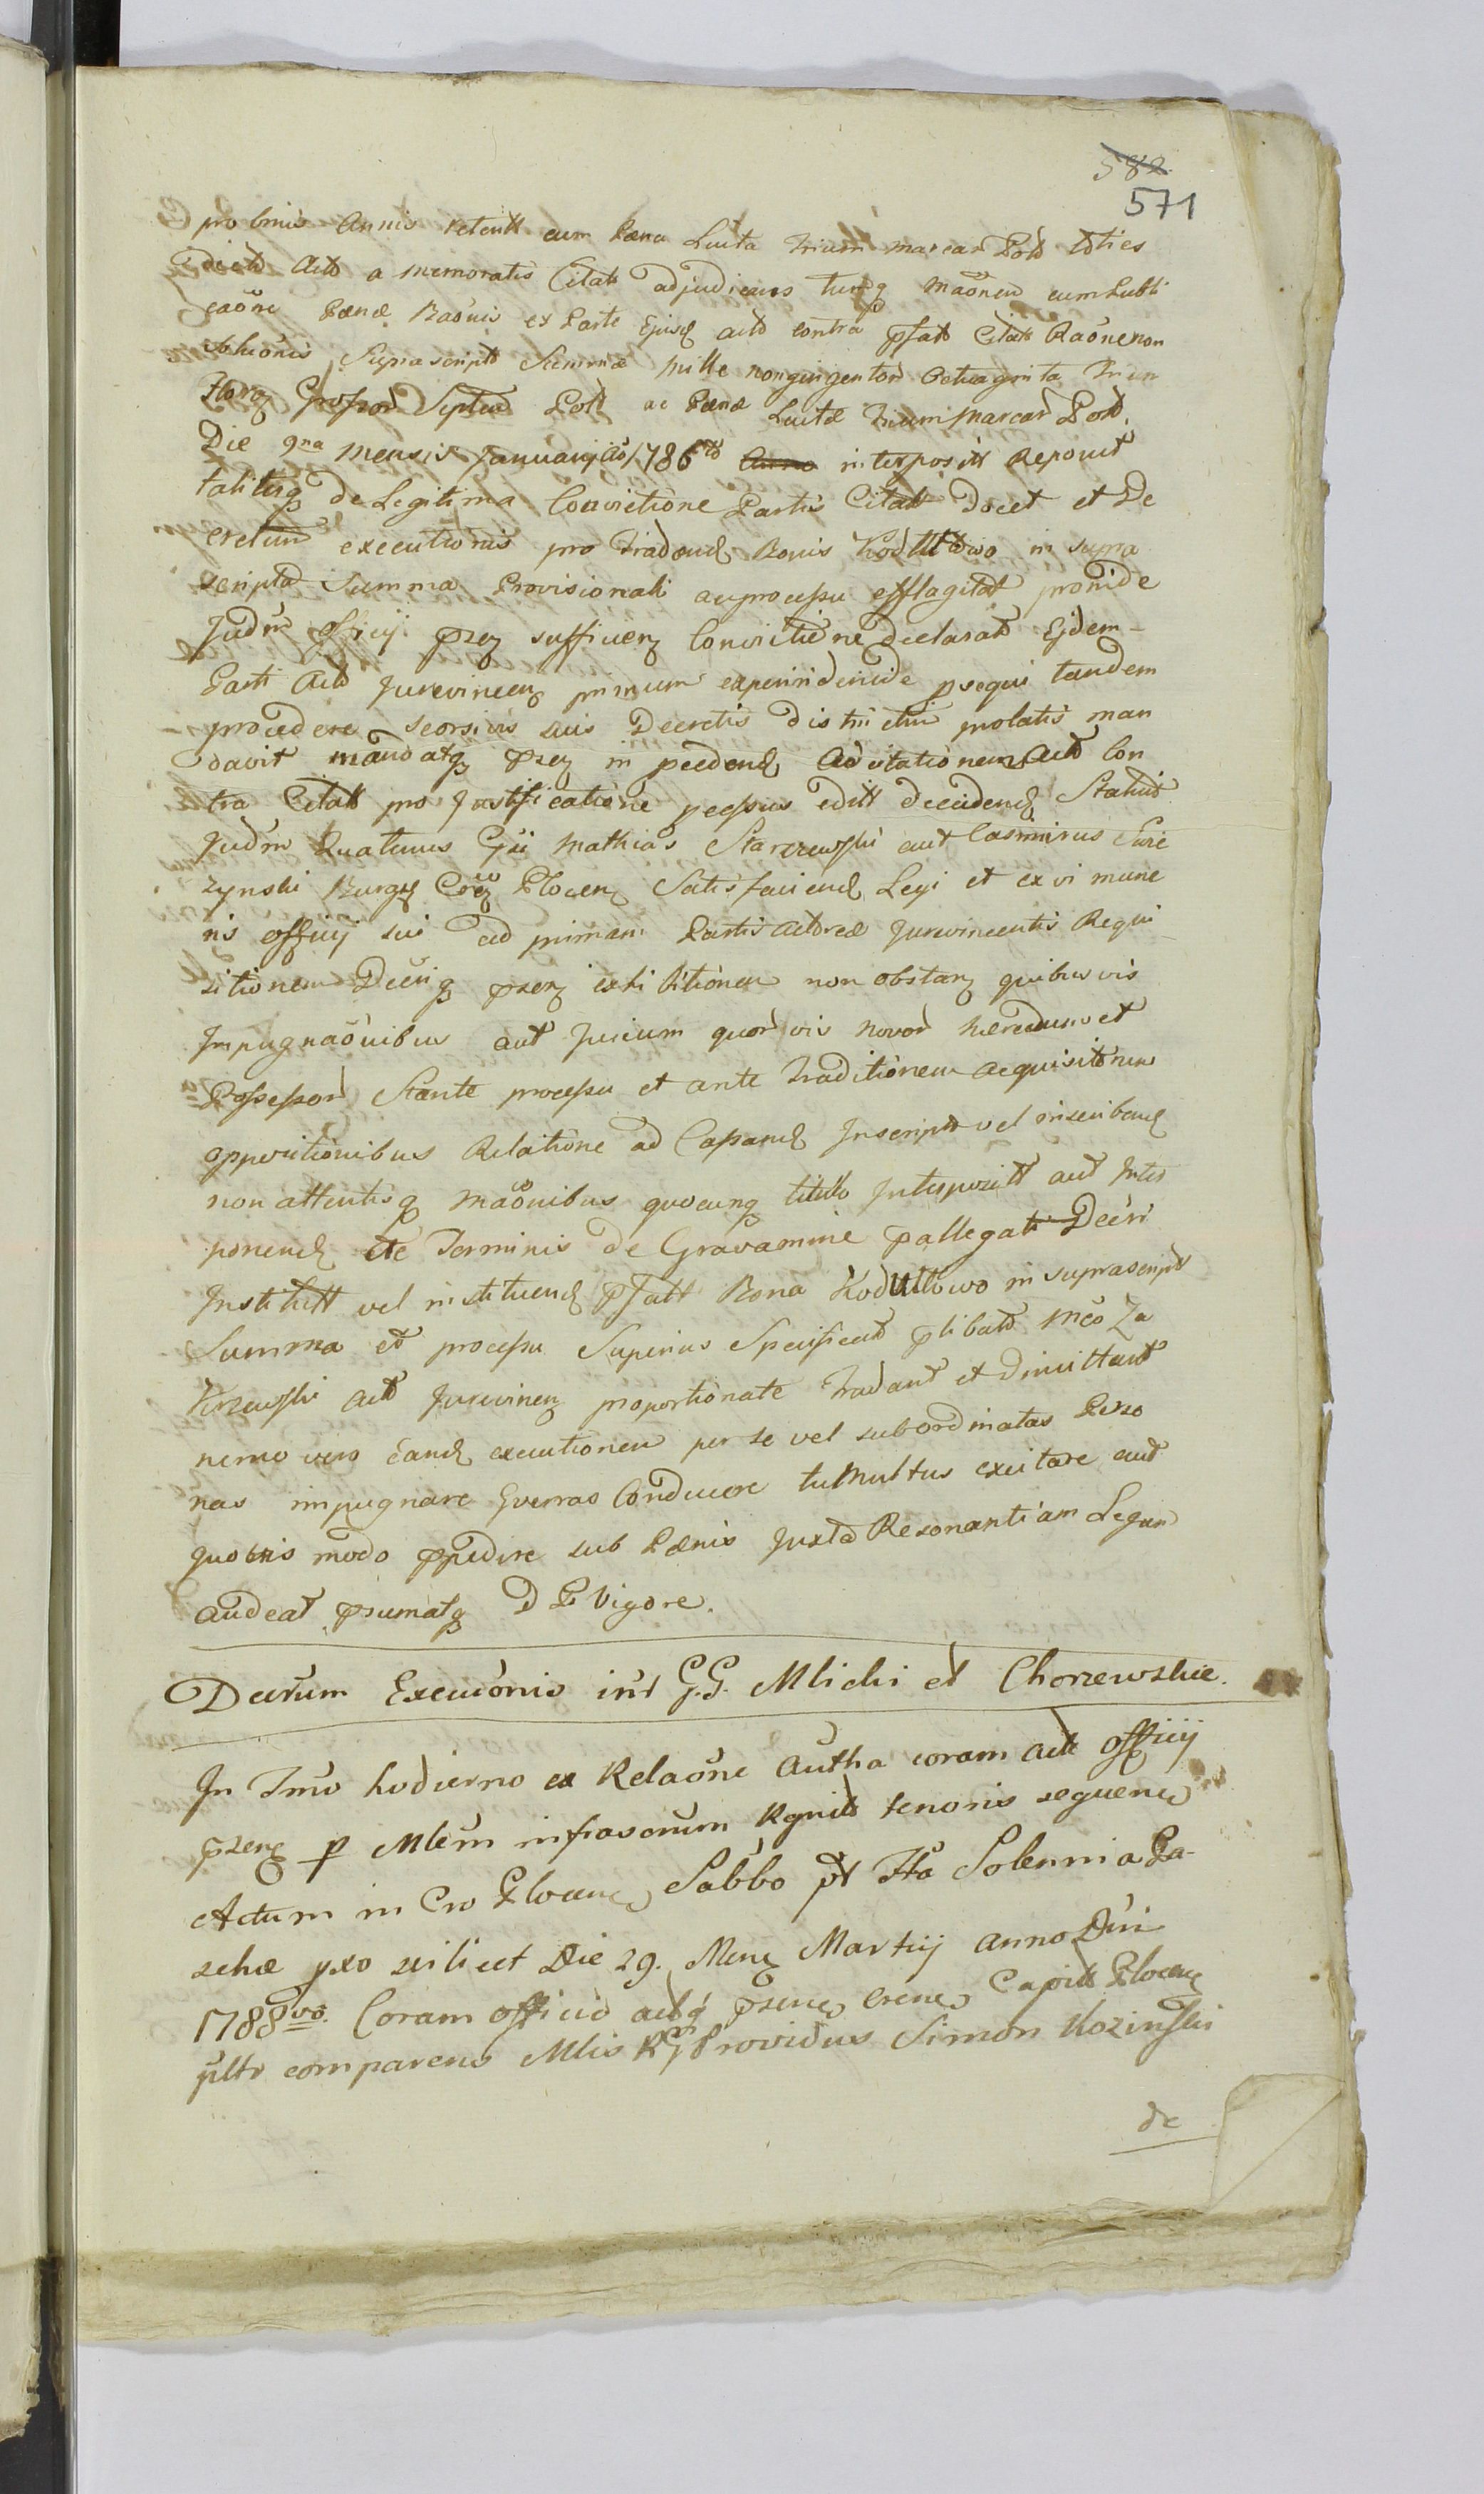 582
571
pro binis Annis retentt cum Pæna Luita trium marcar Polo toties
dicto Acto a memoratis Citat adjudicans tumq maõnem cum Subli
caõne Pænæ Baõnis ex Parte Ejusd acto contra pfato Citat Raõne non
solutionis Suprascripto Summæ mille nongingentor Octuaginta trium
Flor Grossor Septem Poll ac Pænæ Luitæ trium marcar Polo.
Die 9na mensis Januarij Ao 1786to interposit Reponit
taliterq de Legitima Convictione Partis Citatt docet et De
cretum executionis pro tradend Bonis Kodlutowo in supra
scripta Summa Provisionali ac processu efflagitat proinde
Judm Officij pseng sufficien Convictione declarato Ejdem-
Parti Acto Jurevincen primum exinde psequi tandem
procedere seorsivis suis Decretis districtim prolatis man
davit mandatq psen in pcedend Advitationem Acto Con
tra Citatt pro Justificatione pcessus editt decidend Statuit
Judm Quatenus Gsi Mathias Starczewski aut Casimirus Swie
zynski Burg Crs Plocen Satisfaciend Legi et ex vi mune
ris officij sui ad primam Partis Actoreæ Jurevincentis Requi
sitionem Dcriq psen exhibitionem non obstan quibusvis
Impugnaõnibus aut Jurium quorvis novor hæredum et
Possessor Stante processu et ante traditionem acquisitorum
oppositionibus Relatione ad Capand Inscript vel inscribend
non attentisq maõnibus quocunq titulo Interposit aut Inter
ponend etc Terminis de Gravamine pallegati Dccri
Institutt vel instituend pfatt Bona Kodlutowo in suprascripto
Summa et processu Superius Specificato plibato Mco Za
krzewski Acto Jurevincen proportionate tradant et dimittant
nemo vero eand executionem per se vel subordinatas Perso
nas impugnare Guerras Conducere tumultus excitare aut
quovis modo ppedire sub Pænis Juxta Resonantiam Legum
audeat psumatq D P Vigore.
Decrum Execuonis int G.G. Mlicki et Chorzewskie.
In Tmo hodierno ex Relaõne Autha coram Acte officij
psen p Mlem infrascrum Rgnito tenoris sequen
Actum in Cro Plocen Sabbo pt Fta Solennia Pa-
schæ pxo scilicet Die 29. Men Martij Anno Dni
1788vo. Coram officio actq psen Crene Capitt Plocen
pltr comparens Mlis RG Providus Simon Kozinski
de